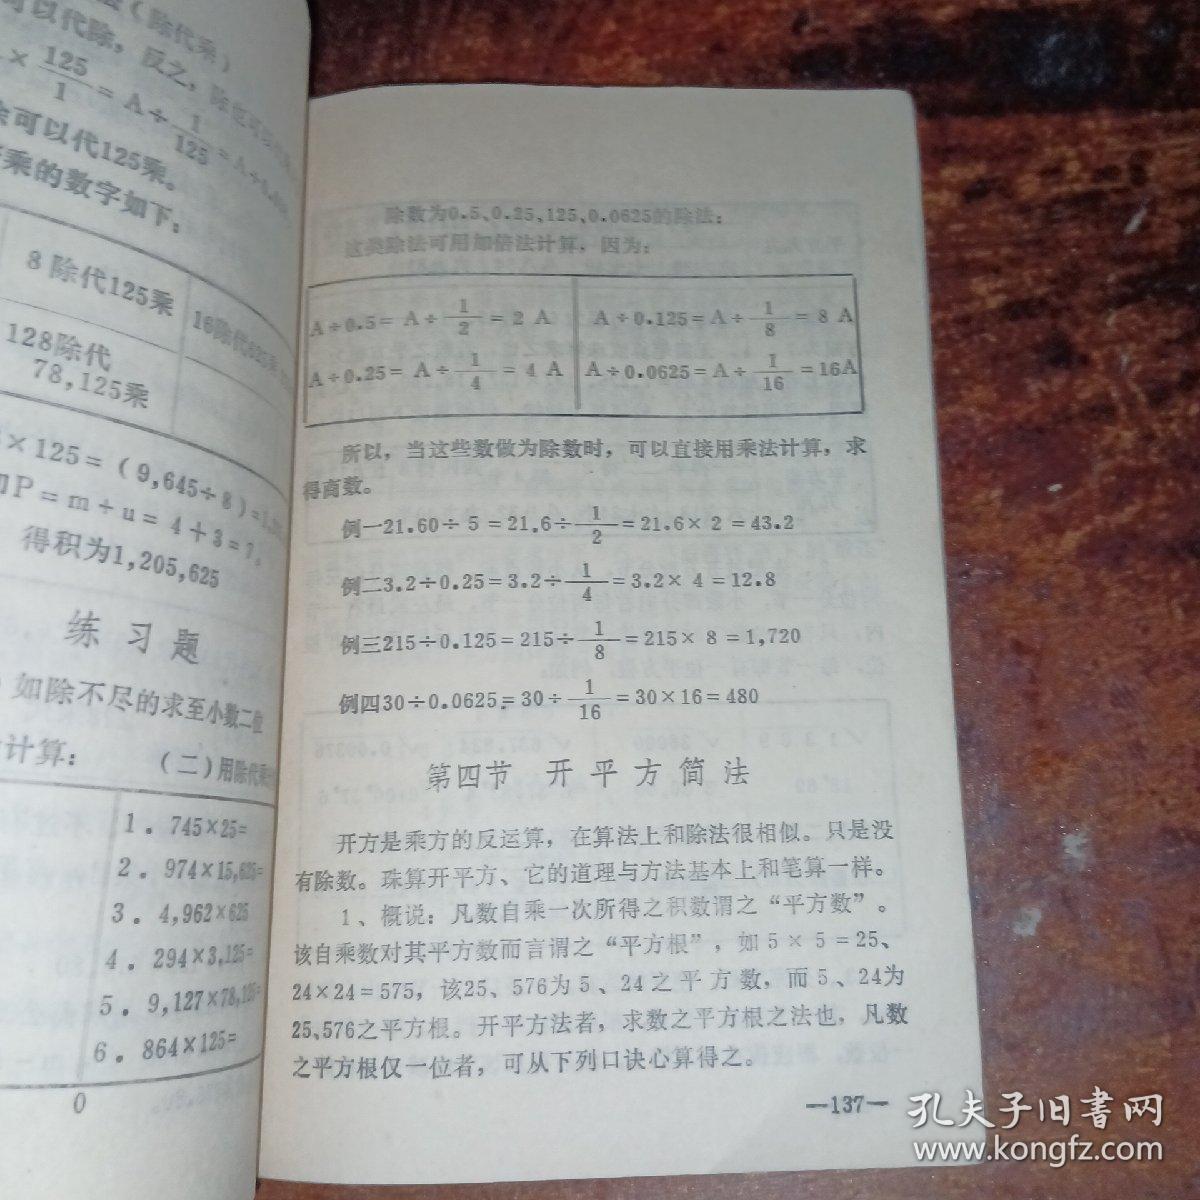 可以代除，反之，
× 125/1 = A ÷ 1/125 = A ÷
可以代125乘。
乘的数字如下：
8 除代125乘
128除代
78,125乘
× 125 = (9,645÷8) =
P = m + u = 4 + 3 = 7。
得积为1,205,625
练 习 题
如除不尽的求至小数二位
计算：
(二)用除代乘
1. 745×25=
2. 974×15,625=
3. 4,962×625
4. 294×3,125=
5. 9,127×78,125=
6. 864×125=
除数为0.5、0.25、125、0.0625的除法：
这类除法可用加倍法计算，因为：
A÷0.5= A÷ 1/2 = 2 A
A÷0.125=A÷ 1/8 = 8 A
A÷0.25= A÷ 1/4 = 4 A
A÷0.0625=A÷ 1/16 =16A
所以，当这些数做为除数时，可以直接用乘法计算，求
得商数。
例一21.60÷ 5 =21.6÷ 1/2 =21.6× 2 =43.2
例二3.2÷0.25=3.2÷ 1/4 =3.2× 4 =12.8
例三215÷0.125=215÷ 1/8 =215× 8 =1,720
例四30÷0.0625=30÷ 1/16 =30×16=480
第四节 开平方简法
开方是乘方的反运算，在算法上和除法很相似。只是没
有除数。珠算开平方、它的道理与方法基本上和笔算一样。
1、概说：凡数自乘一次所得之积数谓之“平方数”。
该自乘数对其平方数而言谓之“平方根”，如 5 × 5 =25、
24×24=575，该25、576为 5 、24之平方数，而 5 、24为
25、576之平方根。开平方法者，求数之平方根之法也，凡数
之平方根仅一位者，可从下列口诀心算得之。
—137—
孔夫子旧书网
www.kongfz.com